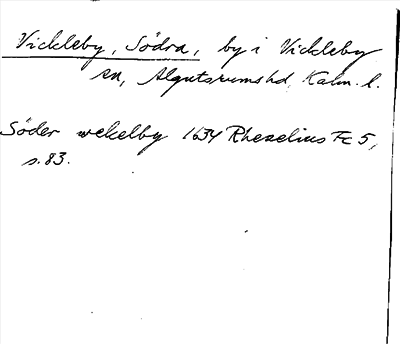 Vickleby, Södra, by i Vickleby
sn, Algutsrums hd, Kalm. l.
Söder wekelby 1634 Rhezelius Fc 5,
s. 83.